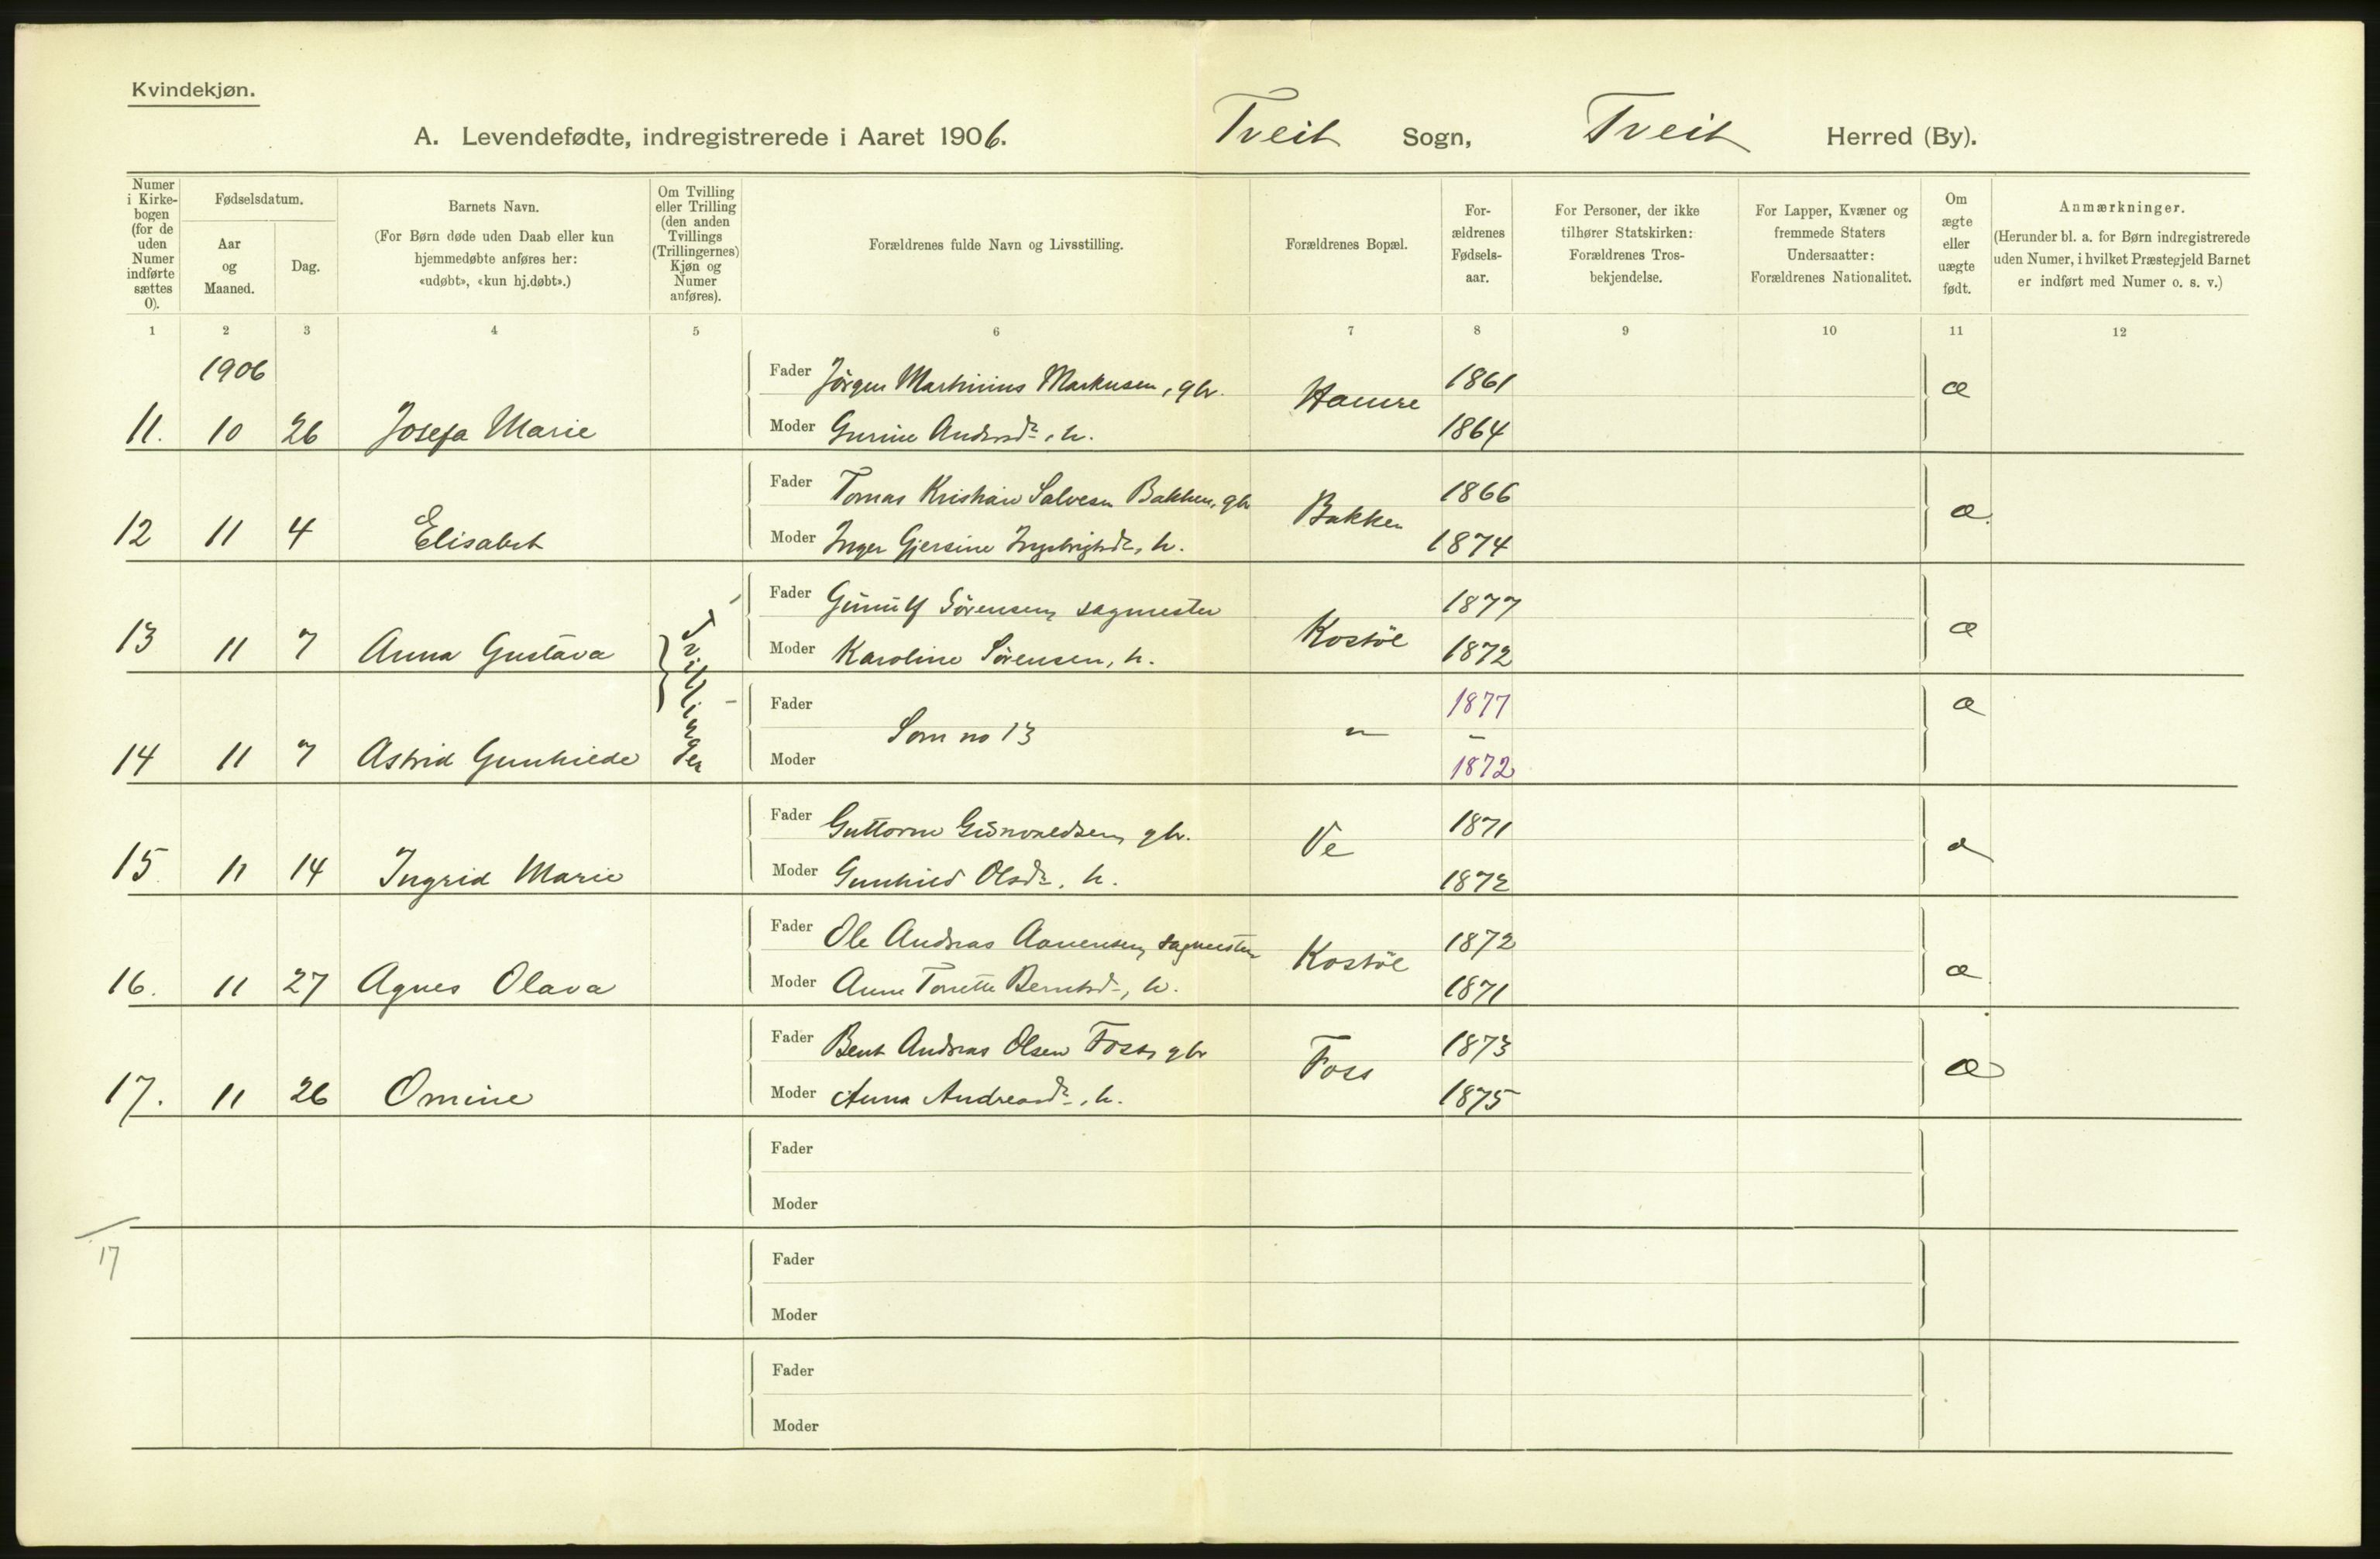 Kvindekjøn.
A. Levendefødte, indregistrerede i Aaret 1906. Tveit Sogn, Tveit Herred (By).
Numer i Kirke-bogen (for de uden Numer indførte sættes 0).
Fødselsdatum.
Aar og Maaned.
Dag.
Barnets Navn.
(For Børn døde uden Daab eller kun
hjemmedøbte anføres her:
«udøbt», «kun hj.døbt».)
Om Tvilling
eller Trilling
(den anden
Tvillings
(Trillingernes)
Kjøn og
Numer
anføres).
Forældrenes fulde Navn og Livsstilling.
Forældrenes Bopæl.
For-
ældrenes
Fødsels-
aar.
For Personer, der ikke
tilhører Statskirken:
Forældrenes Tros-
bekjendelse.
For Lapper, Kvæner og
fremmede Staters
Undersaatter:
Forældrenes Nationalitet.
Om
ægte
eller
uægte
født.
Anmærkninger.
(Herunder bl. a. for Børn indregistrerede
uden Numer, i hvilket Præstegjeld Barnet
er indført med Numer o. s. v.)
1 2 3 4 5 6 7 8 9 10 11 12
1906
Fader Jörgen Martinius Markusen, gbr. Hamre 1861 æ
11. 10 26 Josefa Marie Moder Gurine Andersdr, h. 1864
Fader Tomas Kristian Salvesen Bakken, gbr Bakken 1866 æ.
12 11 4 Elisabet Moder Inger Gjersine h. 1874
Fader Gunulf Sörensen, sagmester Kostöl 1877 æ
13 11 7 Anna Gustava Tvillinger Moder Karoline Sörensen, h. 1872
Fader 1877 æ
Som no 13 " -
14 11 7 Astrid Gunhilde Moder 1872
Fader Guttorm gbr. Ve 1871 æ
15 11 14 Ingrid Marie Moder Gunhild Olsdr, h. 1872
Fader Ole Andreas Aanensen, sagmester Kostöl 1872 æ
16. 11 27 Agnes Olava Moder Anne Tonette Berntsdr, h. 1871
Fader Bent Andreas Olsen Foss, gbr Foss 1873 æ
17. 11 26 Omine Moder Anna Andreasdr, h. 1875
Fader
Moder
17
Fader
Moder
Fader
Moder